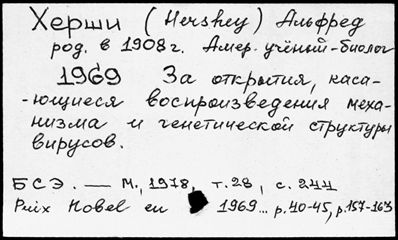 Херши (Hershey) Альфред
род. в 1908 г. Амер. учёный-биолог
1969 За открытия, каса-
-ющиеся воспроизведения меха-
низма и генетической структуры
вирусов.
БСЭ. — М., 1978, т.28, с. 244
Prix Nobel en 1969... p.40-45, p.157-163